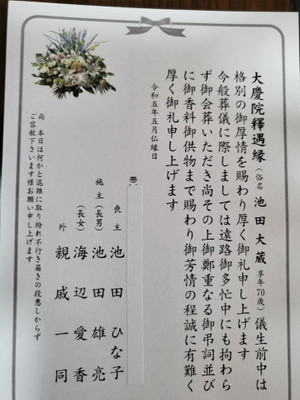 大慶院釋遇縁（俗名 池田大蔵 享年70歳）儀生前中は
格別の御厚情を賜わり厚く御礼申し上げます
今般葬儀に際しましては遠路御多忙中にも拘わら
ず御会葬いただき尚その上御鄭重なる御弔詞並び
に御香料御供物まで賜わり御芳情の程誠に有難く
厚く御礼申し上げます
令和五年五月仏縁日
喪主 池田ひな子
施主（長男） 池田雄亮
（長女） 海辺愛香
外 親戚一同
尚 本日は何かと混雑に取り紛れ不行き届きの段悪しからず
ご容赦下さいます様お願い申し上げます